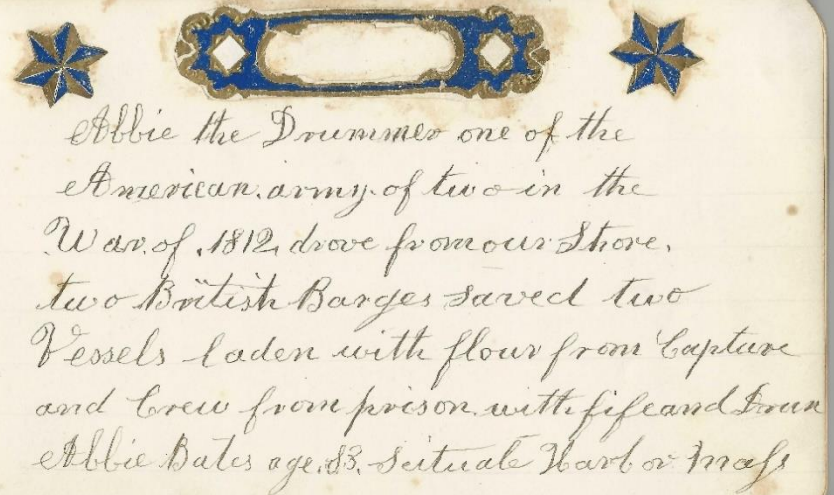 Abbie the Drummer one of the
American. army. of two in the
War. of. 1812. drove from our Shore.
two British Barges saved two
Vessels laden with flour from Capture
and Crew from prison. with fife and Drum
Abbie Bates age. 83. Scituate Harbor Mass